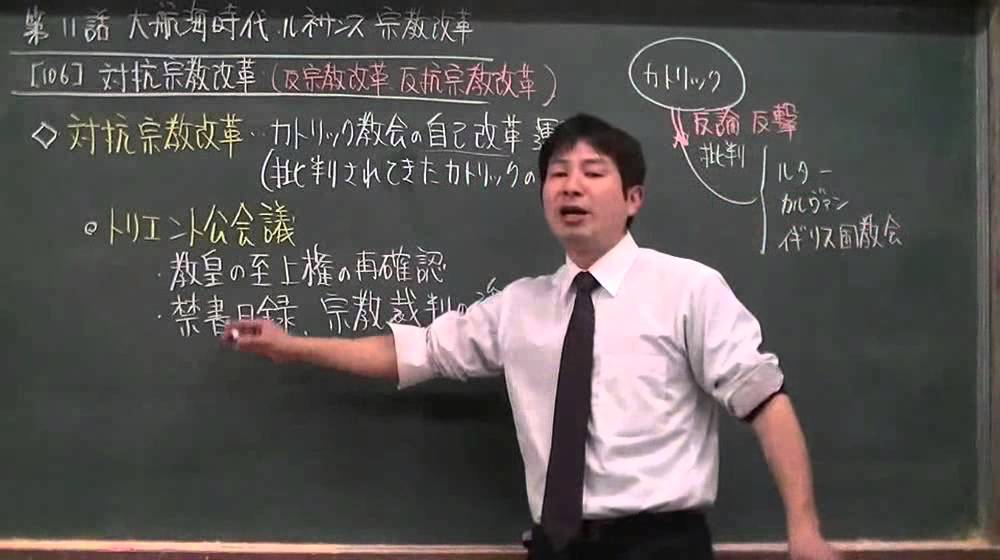 第11話 大航海時代・ルネサンス 宗教改革
[106] 対抗宗教改革 (反宗教改革 反抗宗教改革)
◇対抗宗教改革‥カトリック教会の自己改革運
(批判されてきたカトリックの
トリエント公会議
・教皇の至上権の再確認
・禁書目録、宗教裁判の強
カトリック
反論 反撃
批判
ルター
カルヴァン
イギリス国教会